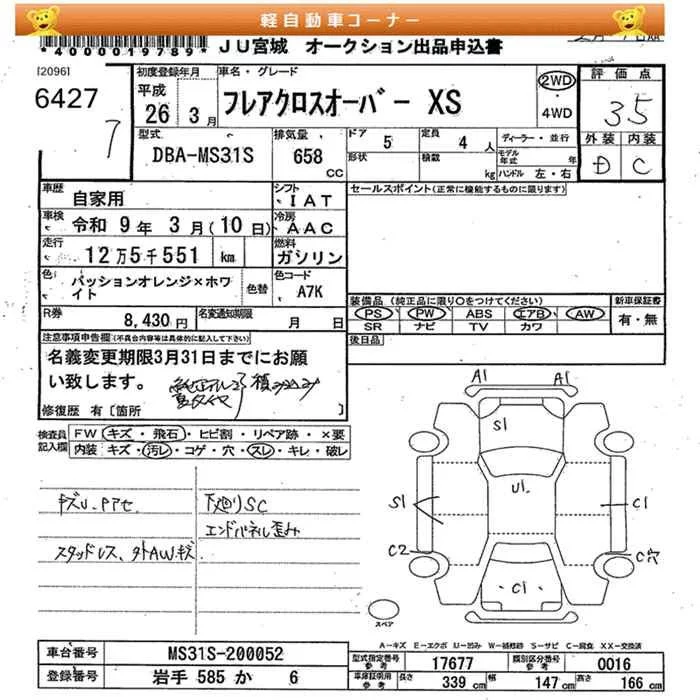 軽自動車コーナー
*4000019789* JU宮城 オークション出品申込書
[2096]
6427
7
初度登録年月 車名・グレード
平成 26 年 3 月 フレアクロスオーバー XS
2WD ・ 4WD
評価点
3.5
外装 内装
D C
型式 DBA-MS31S
排気量 658 CC
ドア 5 定員 4 人
形状 積載 kg
ディーラー・並行
モデル年式 年
ハンドル 左・右
車歴 自家用
シフト IAT
セールスポイント(正常に機能するものに限ります)
車検 令和 9 年 3 月(10 日)
冷房 AAC
走行 12万5千551 km
燃料 ガソリン
色 パッションオレンジ×ホワイト 色替
色コード A7K
R券 8,430 円
名変通知期限 月 日
装備品(純正品に限り○をつけてください)
PS PW ABS エアB AW
SR ナビ TV カワ
新車保証書
有・無
後日品
注意事項申告欄(不具合内容等は具体的に記入して下さい)
名義変更期限3月31日までにお願
い致します。
積み込み
修復歴 有[箇所 ]
検査員記入欄
FW キズ・飛石・ヒビ割・リペア跡・×要
内装 キズ・汚レ・コゲ・穴・スレ・キレ・破レ
キズU、Pアセ
下廻りSC
エンドパネル歪み
スタッドレス、外AWキズ
A1 A1
S1
U1.
S1
C1
C2
C穴
C1
スペア
A-キズ E-エクボ U-凹み W-補修跡 S-サビ C-腐食 XX-交換済
車台番号 MS31S-200052
登録番号 岩手 585 か 6
型式指定番号 参考 17677 類別区分番号 参考 0016
車庫証明用 参考 長さ 339 cm 幅 147 cm 高さ 166 cm